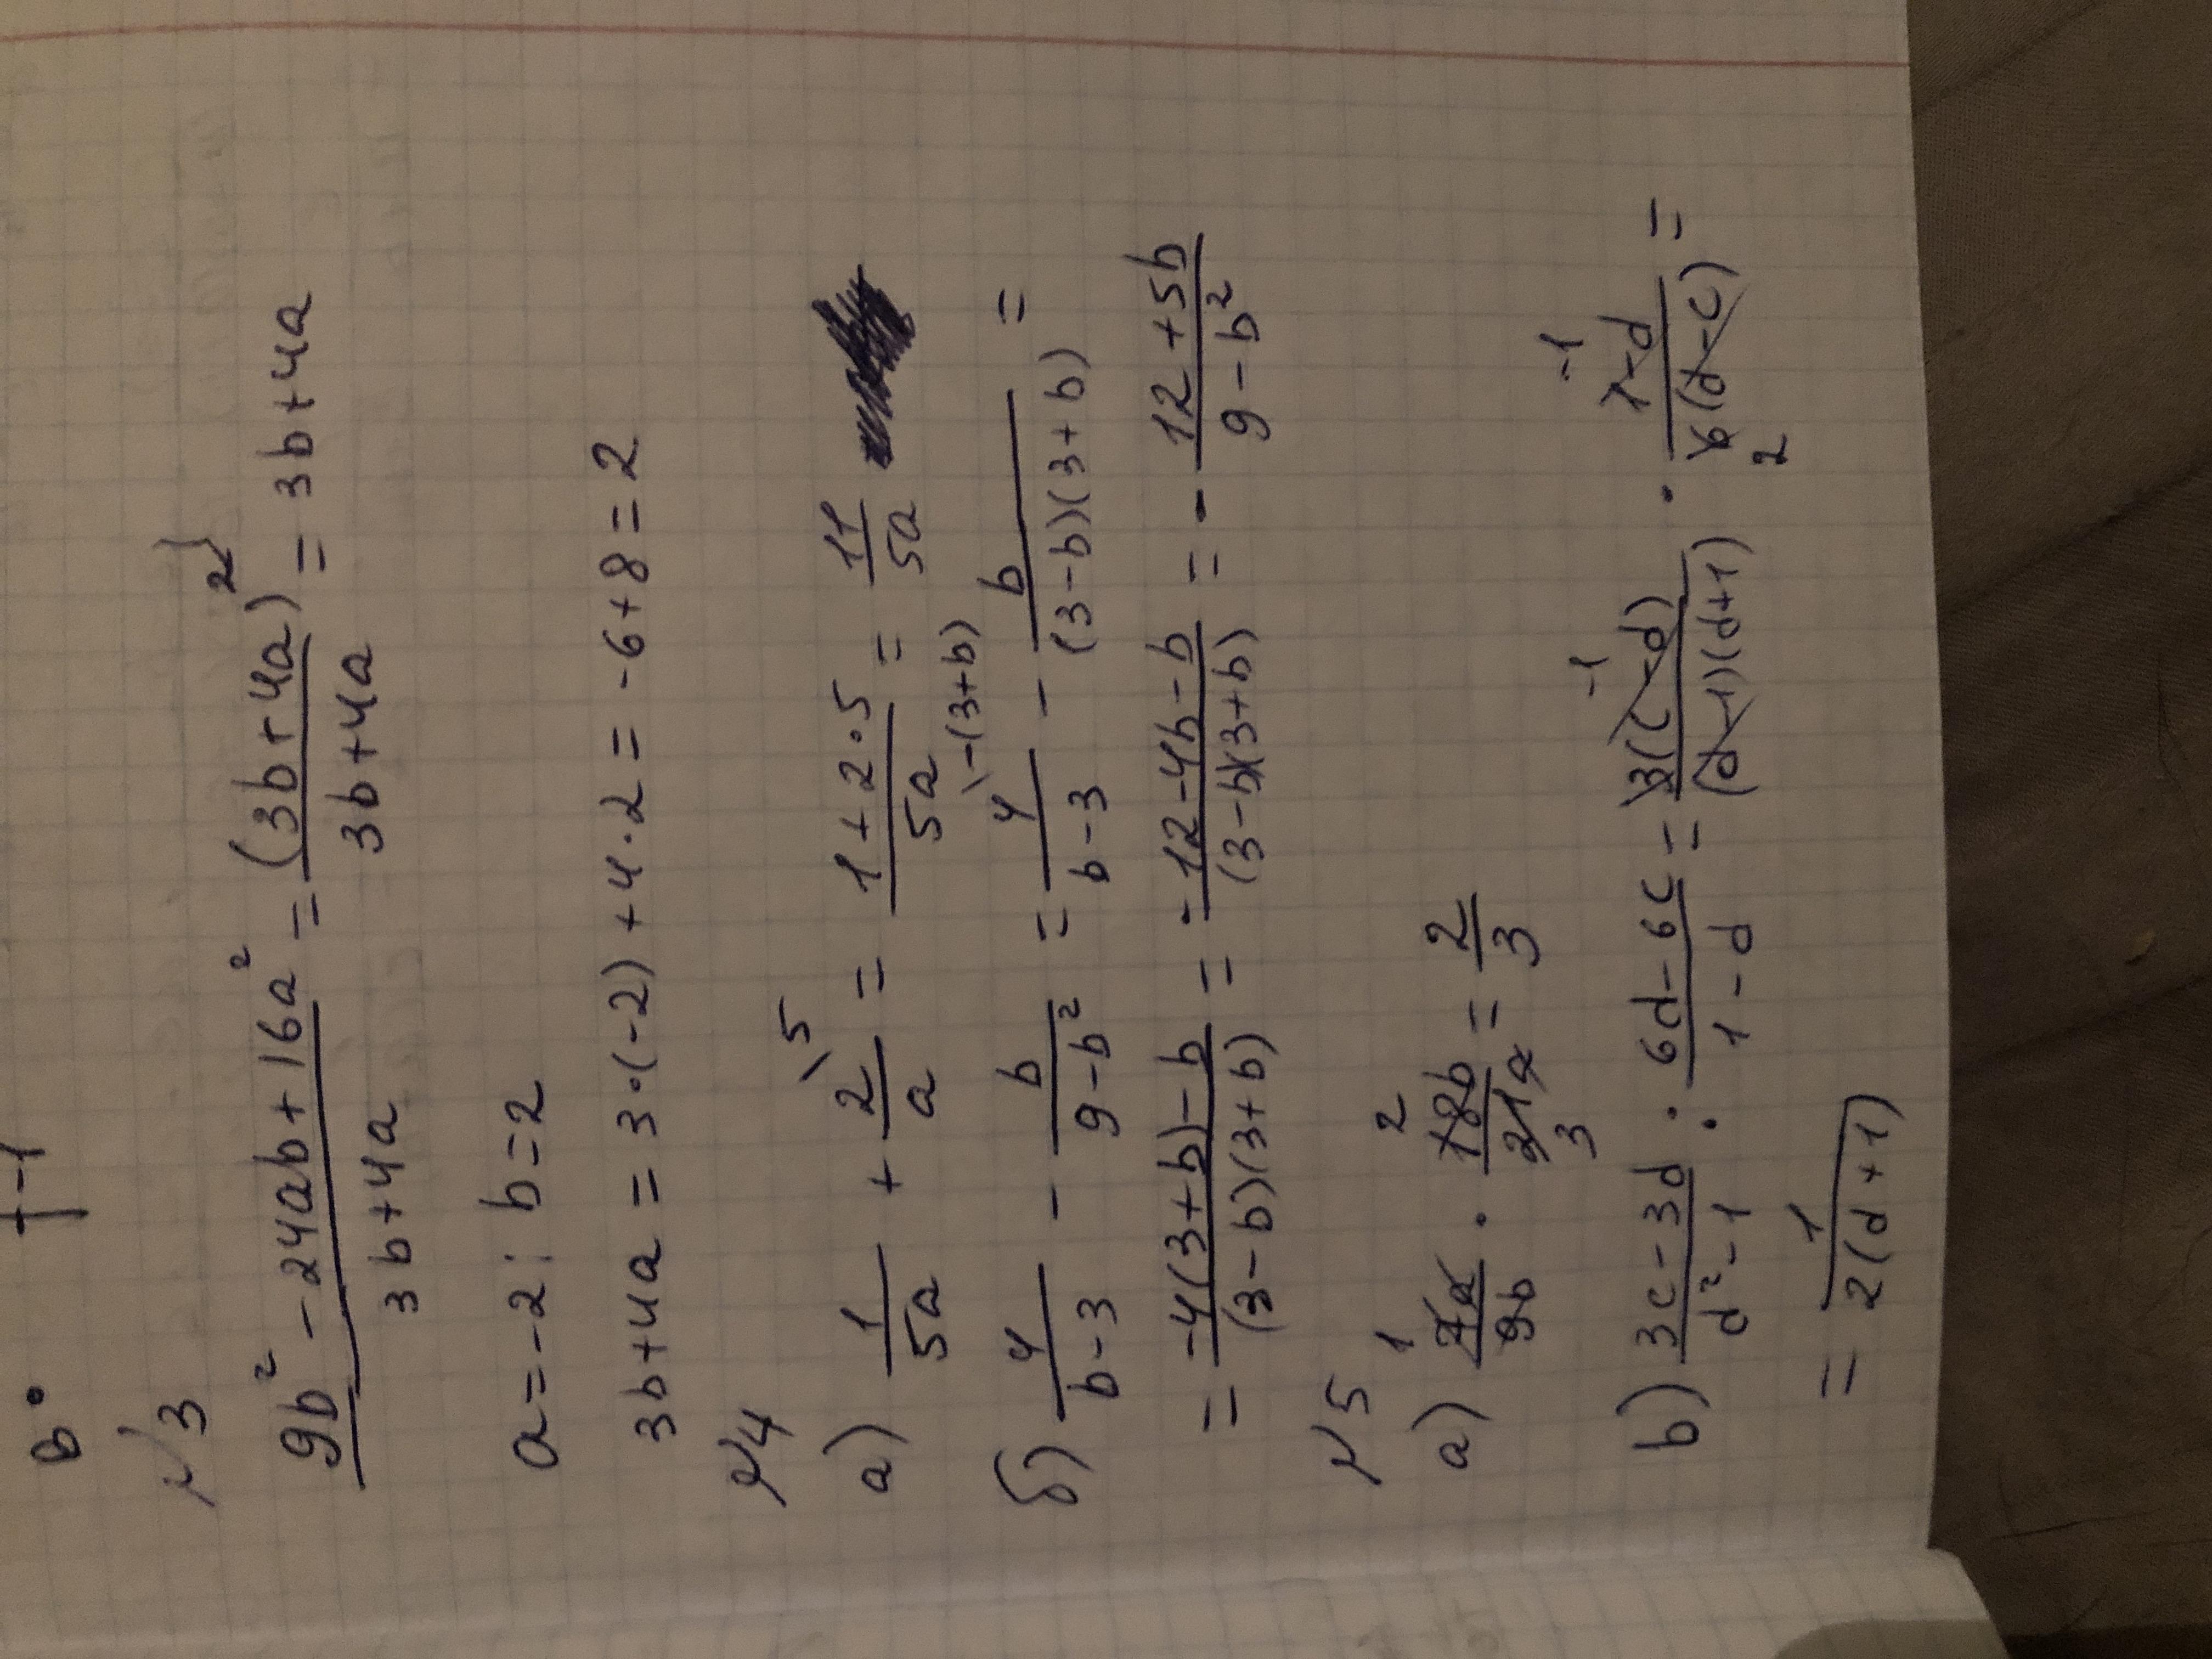 в.
t-1
№3
(9b² - 24ab + 16a²)/(3b + 4a) = (3b + 4a)²/(3b + 4a) = 3b + 4a
a = -2; b = 2
3b + 4a = 3·(-2) + 4·2 = -6 + 8 = 2
№4
а) 1/(5a) + 2/a \5 = (1 + 2·5)/(5a) = 11/(5a)
б) 4/(b - 3) - b/(9 - b²) = 4/(b - 3) \-(3+b) - b/((3 - b)(3 + b)) =
= (-4(3 + b) - b)/((3 - b)(3 + b)) = (-12 - 4b - b)/((3 - b)(3 + b)) = - (12 + 5b)/(9 - b²)
№5
а) 7a/9b · 18b/21a = 2/3
1 2 3
b) (3c - 3d)/(d² - 1) : (6d - 6c)/(1 - d) = 3(c - d)/((d - 1)(d + 1)) · (1 - d)/(6(d - c)) =
-1 -1 2
= 1/(2(d + 1))